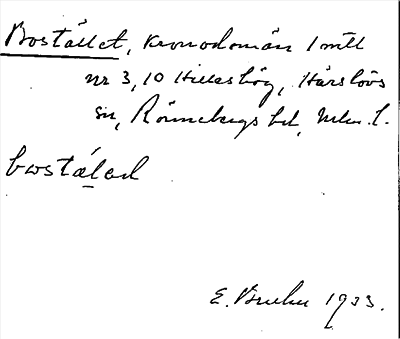 Bostället, kronodomän 1 mtl
nr 3, 10 Hilleshög, Härslövs
sn, Rönnebergs hd, Mlm. l.
bostälad
E. Bruhn 1933.